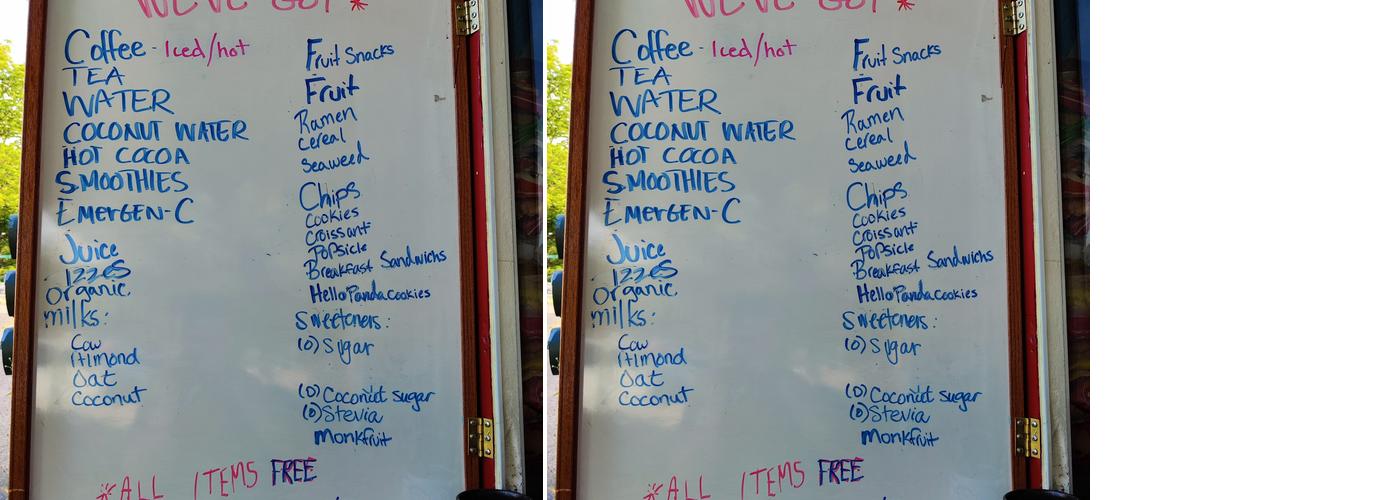 WE'VE GOT *
Coffee - Iced/hot
TEA
WATER
COCONUT WATER
HOT COCOA
SMOOTHIES
EMERGEN-C
Juice
IZZES
Organic
milks:
Cow
Almond
Oat
Coconut
Fruit Snacks
Fruit
Ramen
Cereal
Seaweed
Chips
Cookies
Croissant
Popsicle
Breakfast Sandwichs
Hello Panda cookies
Sweeteners:
(O) Sugar
(O) Coconut sugar
(O) Stevia
Monkfruit
*ALL ITEMS FREE
WE'VE GOT *
Coffee - Iced/hot
TEA
WATER
COCONUT WATER
HOT COCOA
SMOOTHIES
EMERGEN-C
Juice
IZZES
Organic
milks:
Cow
Almond
Oat
Coconut
Fruit Snacks
Fruit
Ramen
Cereal
Seaweed
Chips
Cookies
Croissant
Popsicle
Breakfast Sandwichs
Hello Panda cookies
Sweeteners:
(O) Sugar
(O) Coconut sugar
(O) Stevia
Monkfruit
*ALL ITEMS FREE